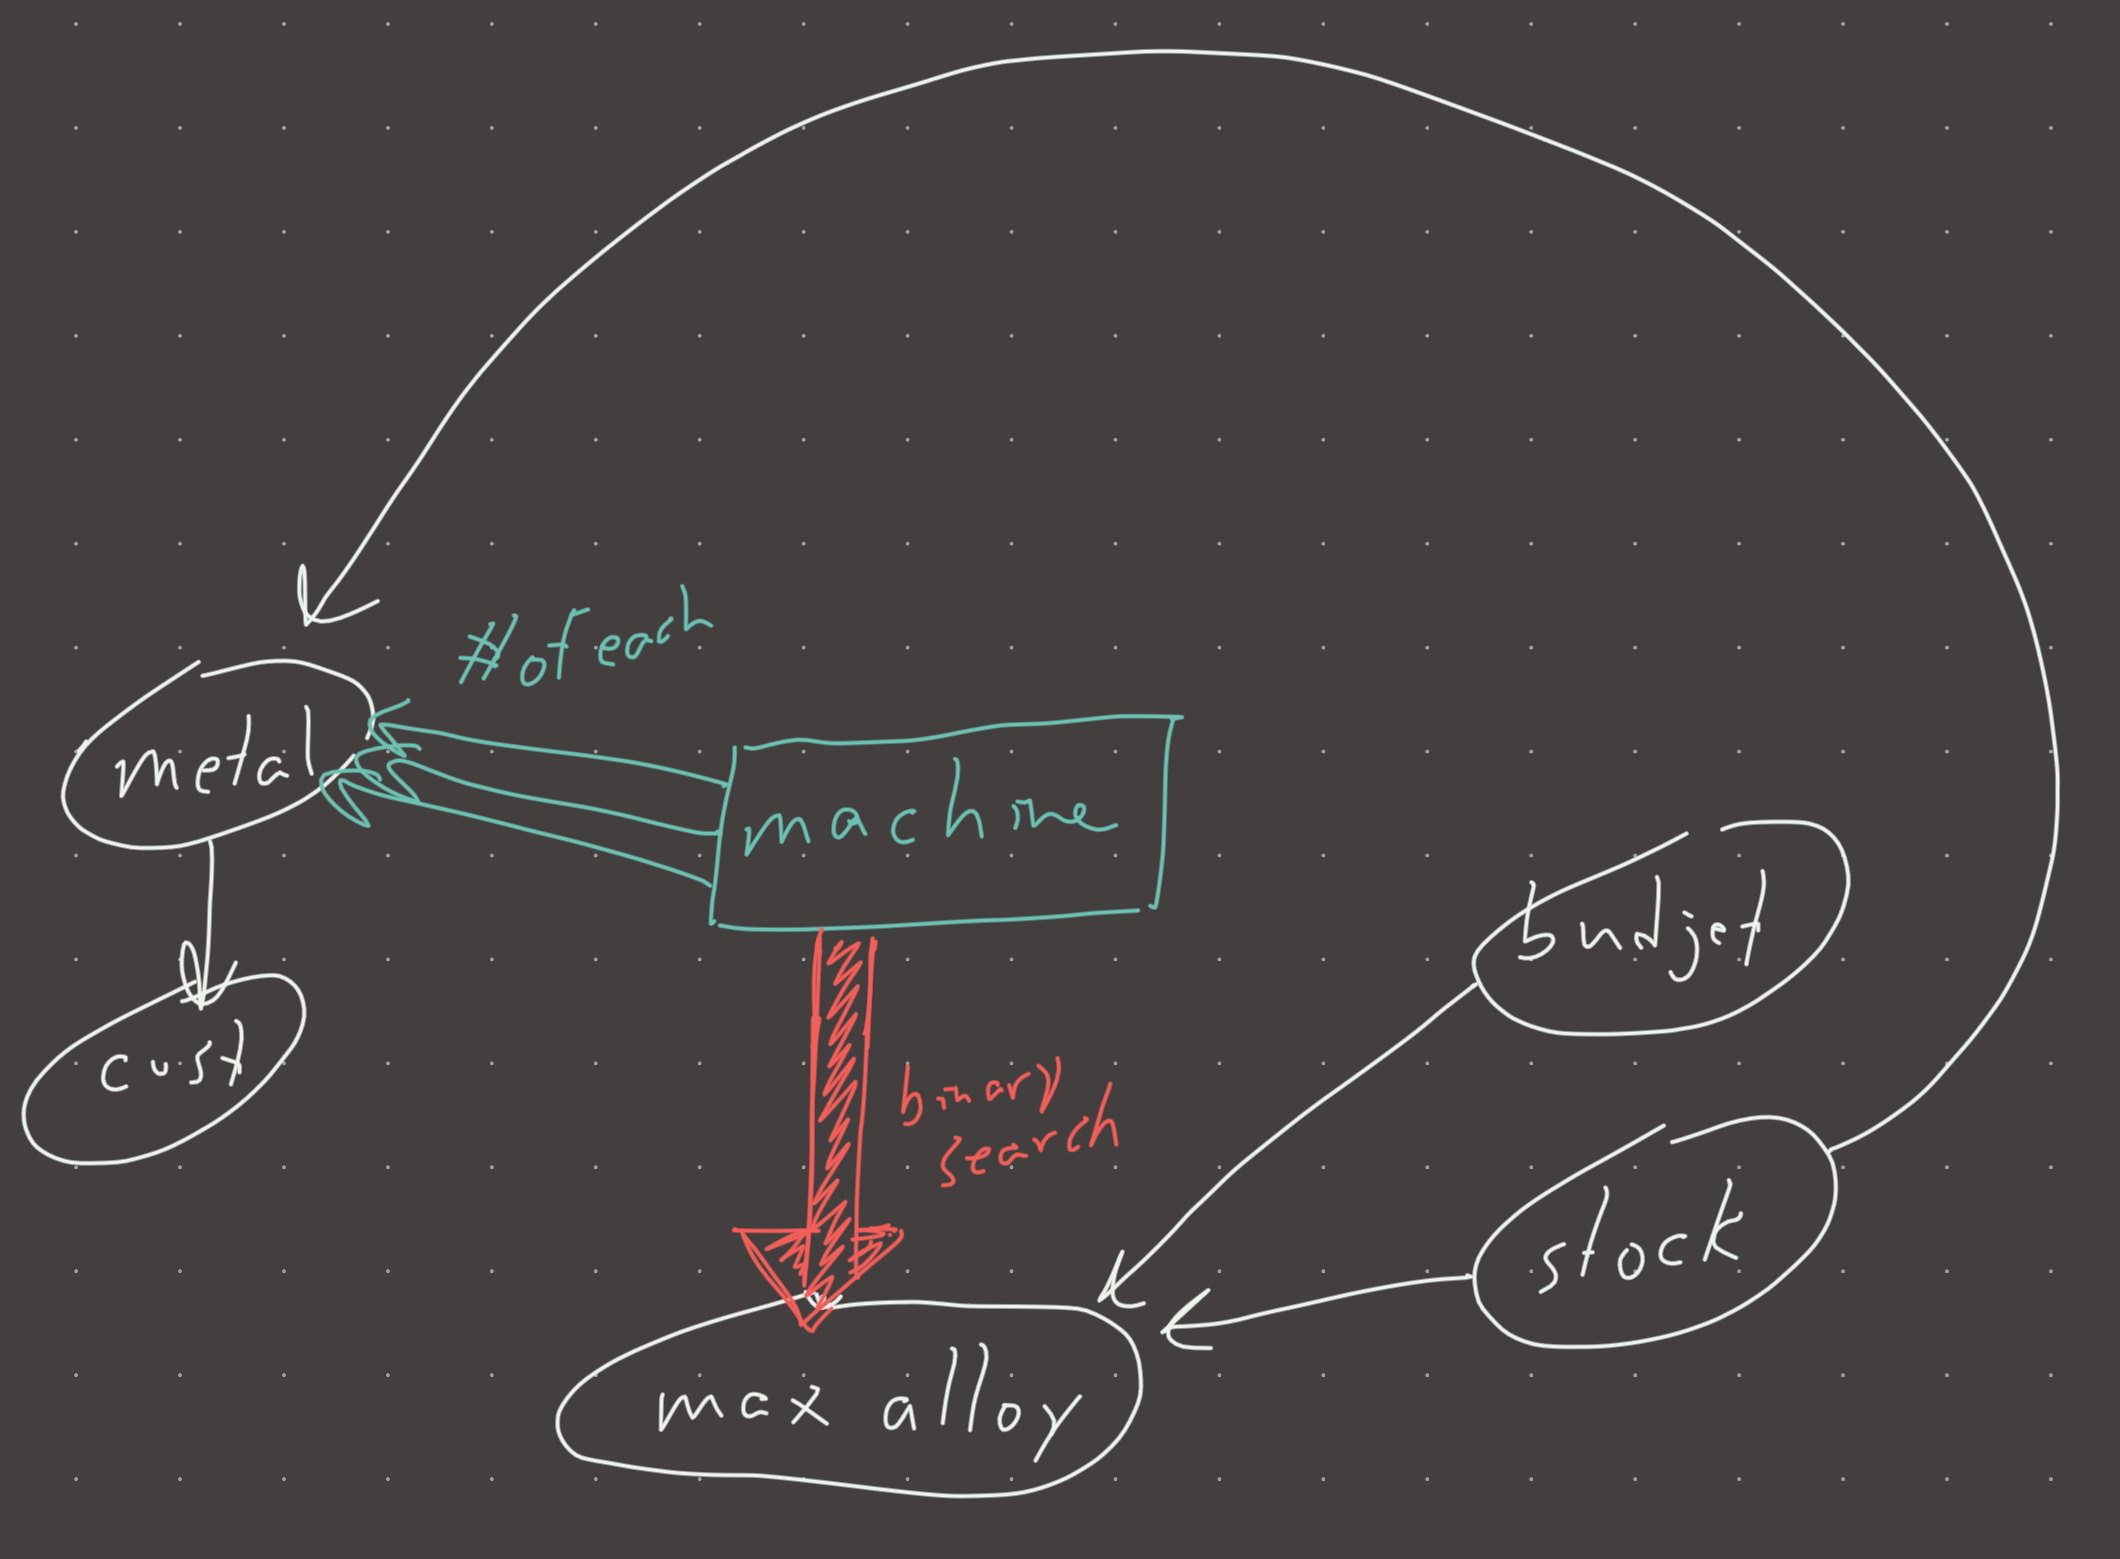 # of each
metal
machine
budjet
cust
binary
search
stock
max alloy